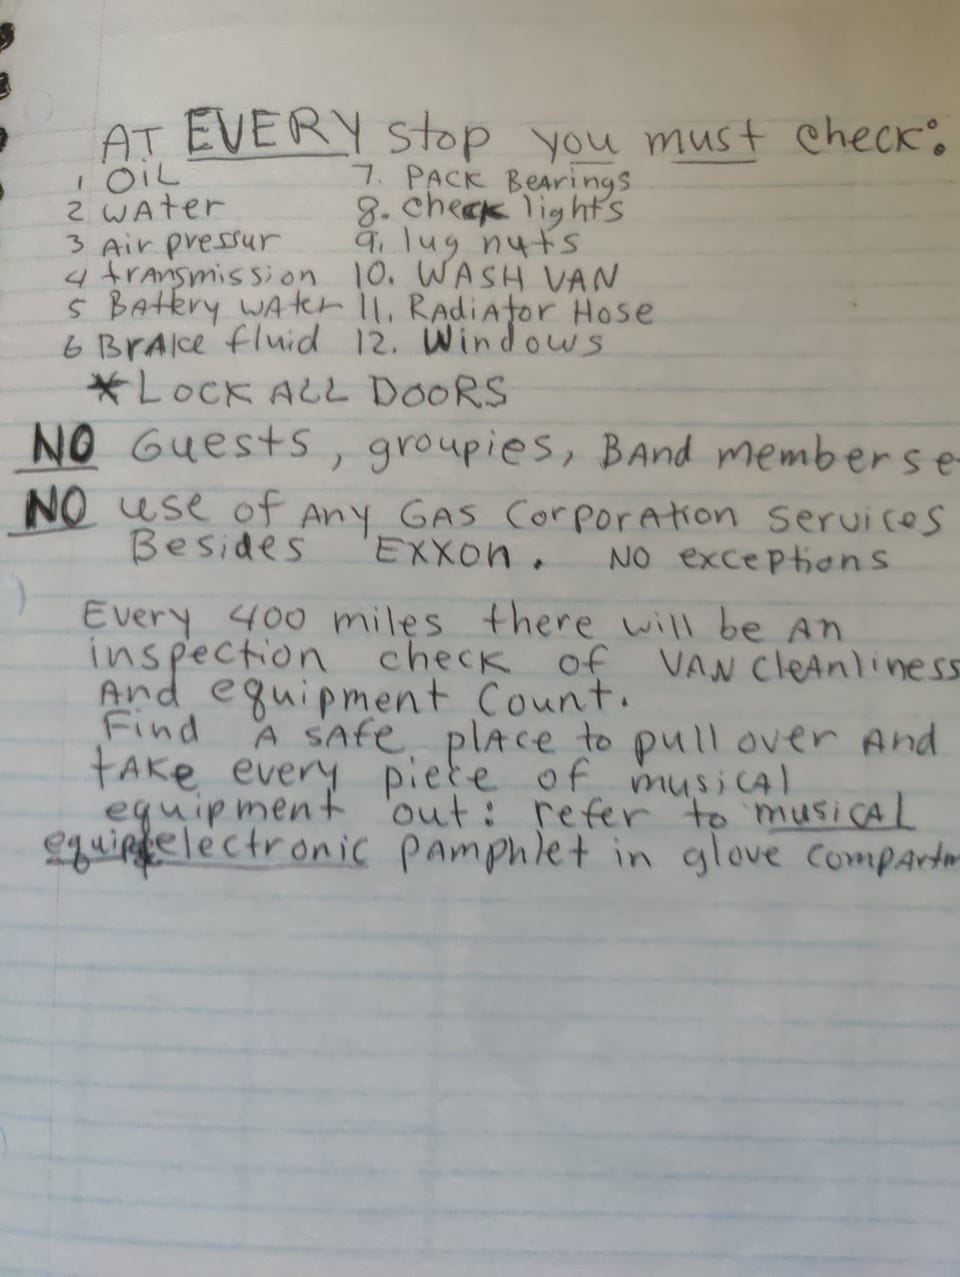 AT EVERY stop you must check:
1 OIL 7. PACK Bearings
2 WAter 8. check lights
3 Air pressur 9. lug nuts
4 trAnsmission 10. WASH VAN
5 BAttery WAter 11. RAdiAtor Hose
6 BrAke fluid 12. Windows
* LOCK ALL DOORS
NO Guests, groupies, BAnd members e
NO use of Any GAS CorporAtion services
Besides EXXON. NO exceptions
Every 400 miles there will be An
inspection check of VAN CleAnliness
And equipment Count.
Find A sAfe plAce to pull over And
tAKe every piece of musicAl
equipment out: refer to musicAL
equip electronic pAmphlet in glove compArtm